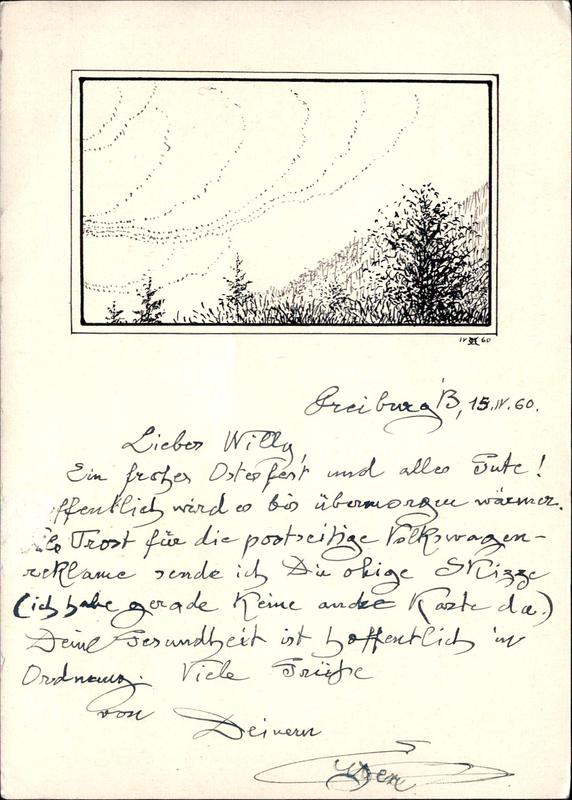 IV 60
Freiburg/B, 15.IV.60.
Lieber Willy
Ein frohes Osterfest und alles Gute!
offentlich wird es bis übermorgen wärmer.
Als Trost für die postseitige Volkswagen-
reklame sende ich Dir obige Skizze
(ich habe gerade keine andre Karte da.)
Deine Gesundheit ist hoffentlich in
Ordnung. Viele Grüße
von Deinem